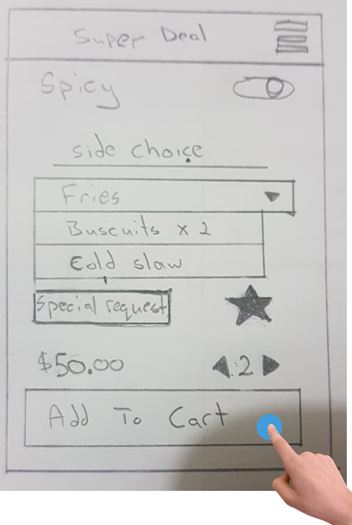 Super Deal
Spicy
side choice
Fries
Buscuits x 2
Cold slaw
Special request
$50.00 2
Add To Cart